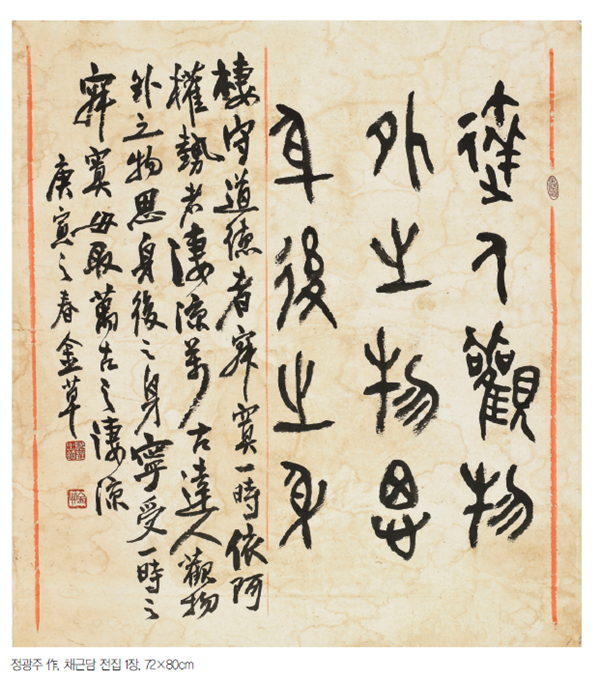 達人觀物
外之物思
身後之身
棲守道德者寂寞一時依阿
權勢者淒涼萬古達人觀物
外之物思身後之身寧受一時之
寂寞毋取萬古之淒涼
庚寅之春金草
정광주 作, 채근담 전집 1장, 72×80cm